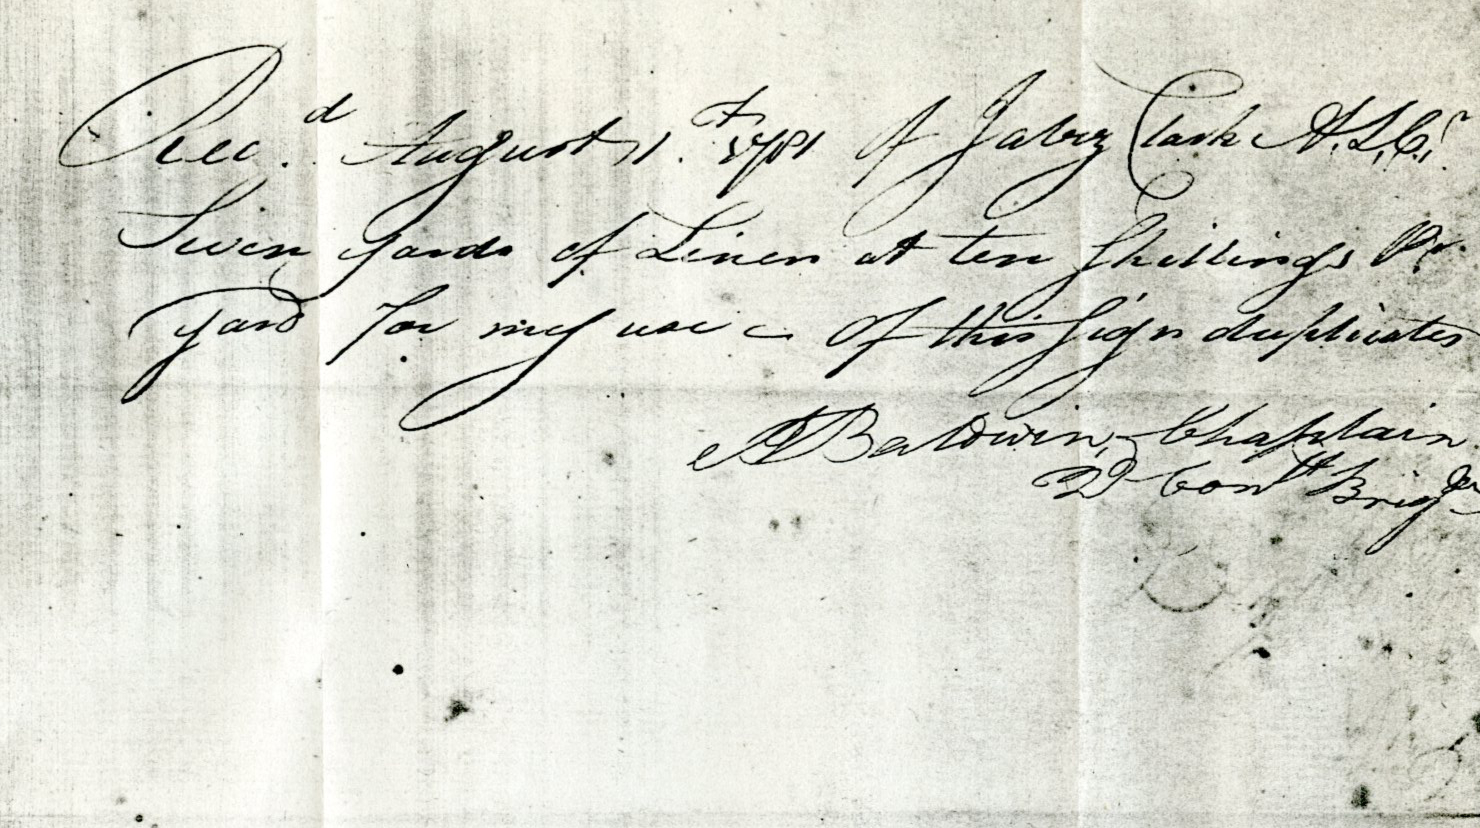 Recd. August 1.st 1781 of Jabez Clark A.S.C.r
Seven yards of Linen at ten Shillings Pr.
yard for my use of this sign duplicates
A Baldwin, Chaplain
2d Conctt Brigde